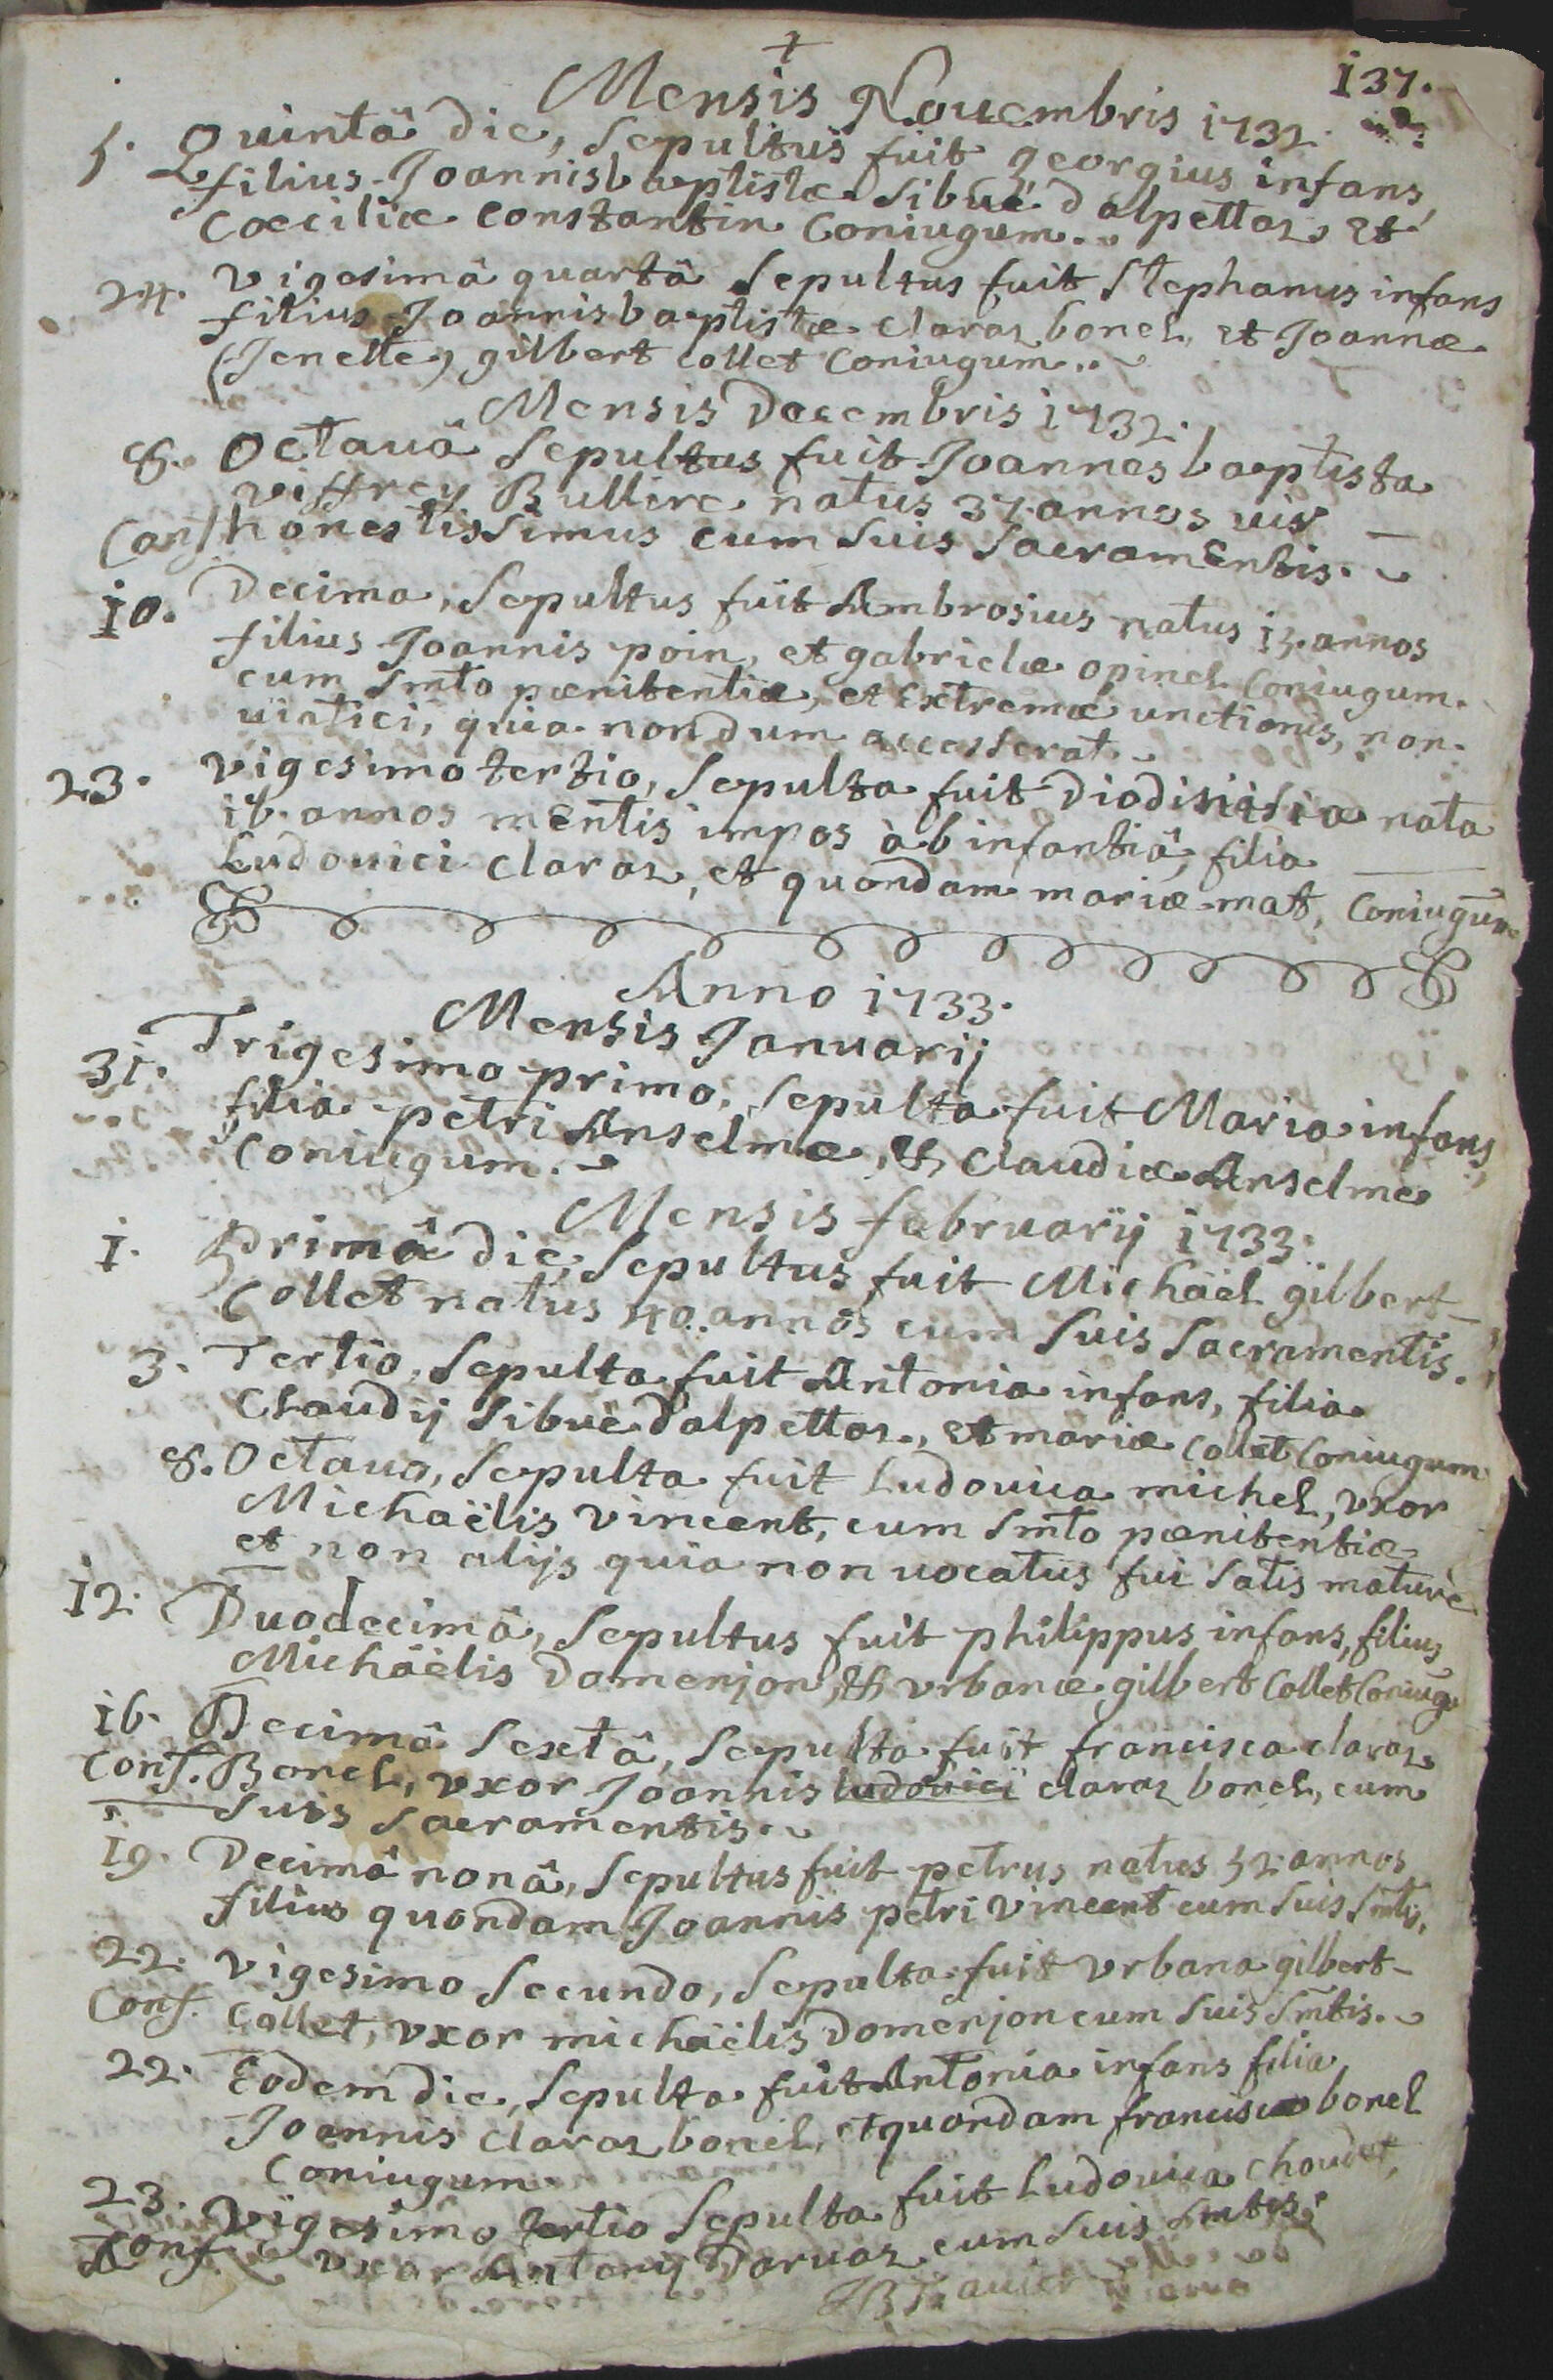 +
137.
Mensis Nouembris 1732.
5. Quintâ die, Sepultus fuit georgius infans,
filius Joannisbaptistæ Sibué dalpettaz, et
Cœciliæ constantin Coniugum.
24. vigesimâ quartâ Sepultus fuit Stephanus infans
filius Joannisbaptistæ claraz bonel, et Joannæ
(Jenette) gilbert collet Coniugum..
Mensis Decembris 1732.
8. Octauâ Sepultus fuit Joannes baptista
viffrey Bullire natus 37. annos uir
Conf honestissimus cum suis Sacramentis.
10. Decima, Sepultus fuit Ambrosius natus 15. annos
filius Joannis poin, et gabrielæ opinel Coniugum.
cum Smto pænitentiæ, et Extremæ unctionis, non
uiatici, quia nondum accesserat.
23. vigesimo tertio, Sepulta fuit nata
16. annos mentis impos àb infantiâ, filia
Ludouici claraz, et quondam mariæ mat, Coniugum
Anno 1733.
Mensis Januarij
31. Trigesimo primo, Sepulta fuit Maria infans,
filia petri Anselme, & Claudiæ Anselme
Coniugum.
Mensis februarij 1733.
1. Primâ die, Sepultus fuit Michaël gilbert
Collet natus 40. annos cum Suis Sacramentis.
3. Tertio, Sepulta fuit Antonia infans, filia
Claudij Sibué dalpettaz, et mariæ Collet Coniugum
8. Octauo, Sepulta fuit Ludouica michel, vxor
Michaëlis vincent, cum Smto pænitentiæ
et non alijs quia non uocatus fui Satis maturè
12. Duodecimâ, Sepultus fuit philippus infans, filius
Michaëlis Domenjon, & vrbanæ gilbert Collet Coniug
16. Decimâ Sextâ, Sepulta fuit francisca claraz
Conf. Bonel, vxor Joannis ludouici claraz bonel, cum
Suis Sacramentis.
19. Decimâ nonâ, Sepultus fuit petrus natus 52 annos
filius quondam Joannis petri vincent cum Suis Smtis,
22. vigesimo Secundo, Sepulta fuit vrbana gilbert
Conf. Collet, vxor michaëlis Domenjon cum Suis Smtis.
22. Eodem die, Sepulta fuit Antonia infans filia
Joannis claraz bonel, et quondam franciscæ bonel
Coniugum
23. Vigesimo tertio Sepulta fuit Ludouica
Conf. vxor Antonij Daruaz cum Suis Smtis.